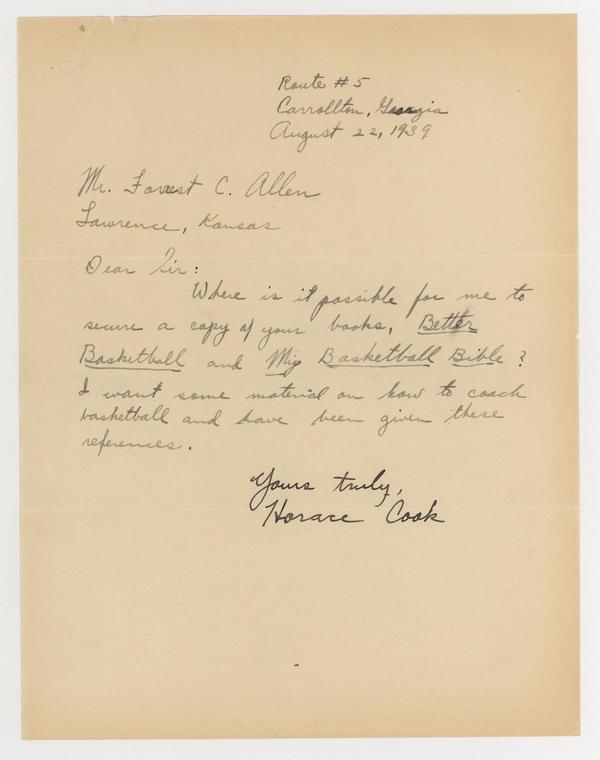 Route #5
Carrollton, Georgia
August 22, 1939
Mr. Forrest C. Allen
Lawrence, Kansas
Dear Sir:
Where is it possible for me to
secure a copy of your books, Better
Basketball and My Basketball Bible?
I want some material on how to coach
basketball and have been given these
references.
Yours truly,
Horace Cook